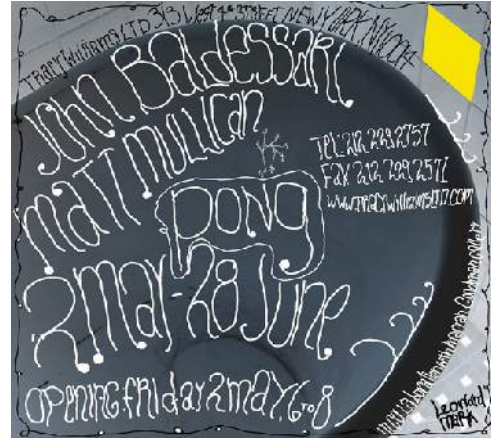 Tracy Williams LTD 313 West 4th STREET NEW YORK NY 10014
John BaLDessari
MATT MULLICAN
PONG
TEL: 212.229.2757
Fax 212.229.
www.TracyWilliamsLTD.com
2 May - 28 June
OPENING FriDay 2 May 6 to 8